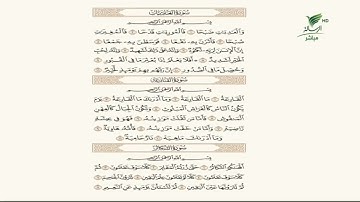 سورة العاديات
بسم الله الرحمن الرحيم
والعاديات ضبحا ۝ فالموريات قدحا ۝ فالمغيرات
صبحا ۝ فأثرن به نقعا ۝ فوسطن به جمعا ۝
إن الإنسان لربه لكنود ۝ وإنه على ذلك لشهيد ۝ وإنه لحب الخير
لشديد ۝ أفلا يعلم إذا بعثر ما في القبور ۝
وحصل ما في الصدور ۝ إن ربهم بهم يومئذ لخبير ۝
سورة القارعة
بسم الله الرحمن الرحيم
القارعة ۝ ما القارعة ۝ وما أدراك ما القارعة ۝ يوم
يكون الناس كالفراش المبثوث ۝ وتكون الجبال كالعهن
المنفوش ۝ فأما من ثقلت موازينه ۝ فهو في عيشة
راضية ۝ وأما من خفت موازينه ۝ فأمه هاوية ۝
وما أدراك ما هيه ۝ نار حامية ۝
سورة التكاثر
بسم الله الرحمن الرحيم
ألهاكم التكاثر ۝ حتى زرتم المقابر ۝ كلا سوف تعلمون ۝ ثم
كلا سوف تعلمون ۝ كلا لو تعلمون علم اليقين ۝ لترون الجحيم
۝ ثم لترونها عين اليقين ۝ ثم لتسألن يومئذ عن النعيم ۝
HD
مباشر